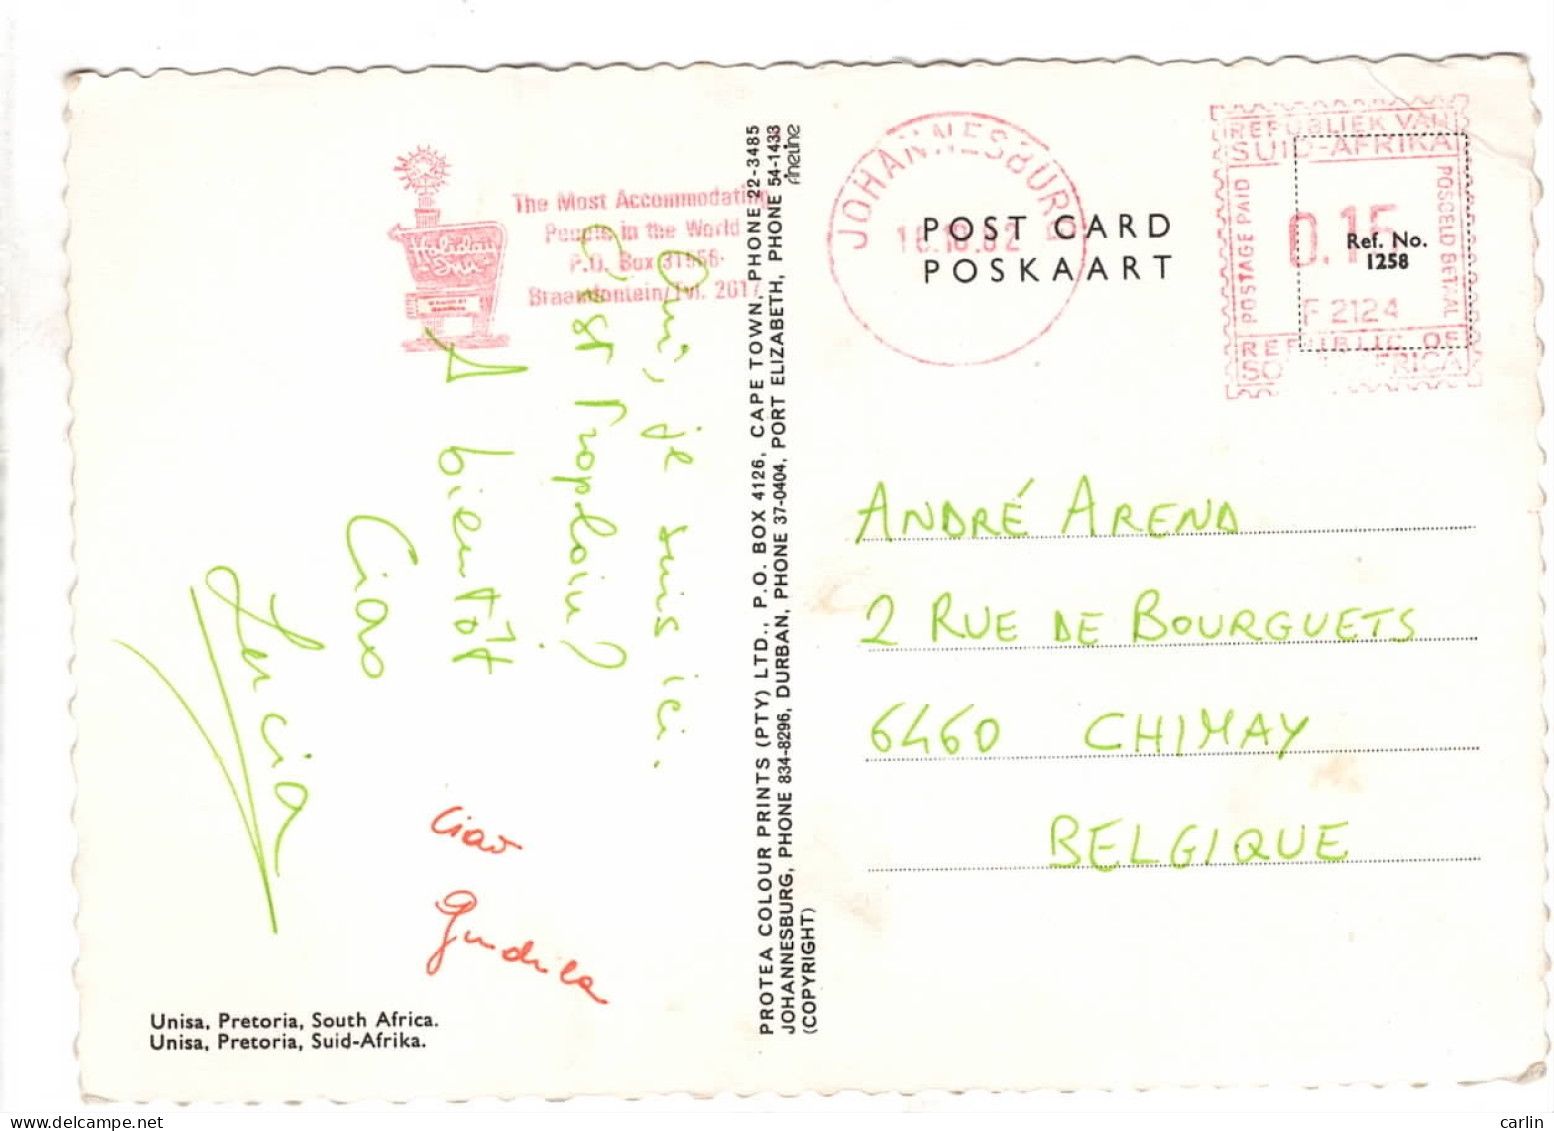 The Most Accommodating
People in the World
P.O. Box 31556
Braamfontein/Tvl. 2017
Holiday
Inn
Oui, je suis ici.
C'est trop loin?
A bientôt
Ciao
Lucia
Ciao
Unisa, Pretoria, South Africa.
Unisa, Pretoria, Suid-Afrika.
PROTEA COLOUR PRINTS (PTY) LTD., P.O. BOX 4126, CAPE TOWN, PHONE 22-3485
JOHANNESBURG, PHONE 834-8296, DURBAN, PHONE 37-0404, PORT ELIZABETH, PHONE 54-1433
(COPYRIGHT)
fineline
JOHANNESBURG
18.10.82
POST CARD
POSKAART
REPUBLIEK VAN
SUID-AFRIKA
POSTAGE PAID
POSGELD BETAAL
0.15
F 2124
REPUBLIC OF
SOUTH AFRICA
Ref. No.
1258
ANDRÉ AREND
2 RUE DE BOURGUETS
6460 CHIMAY
BELGIQUE
carlin